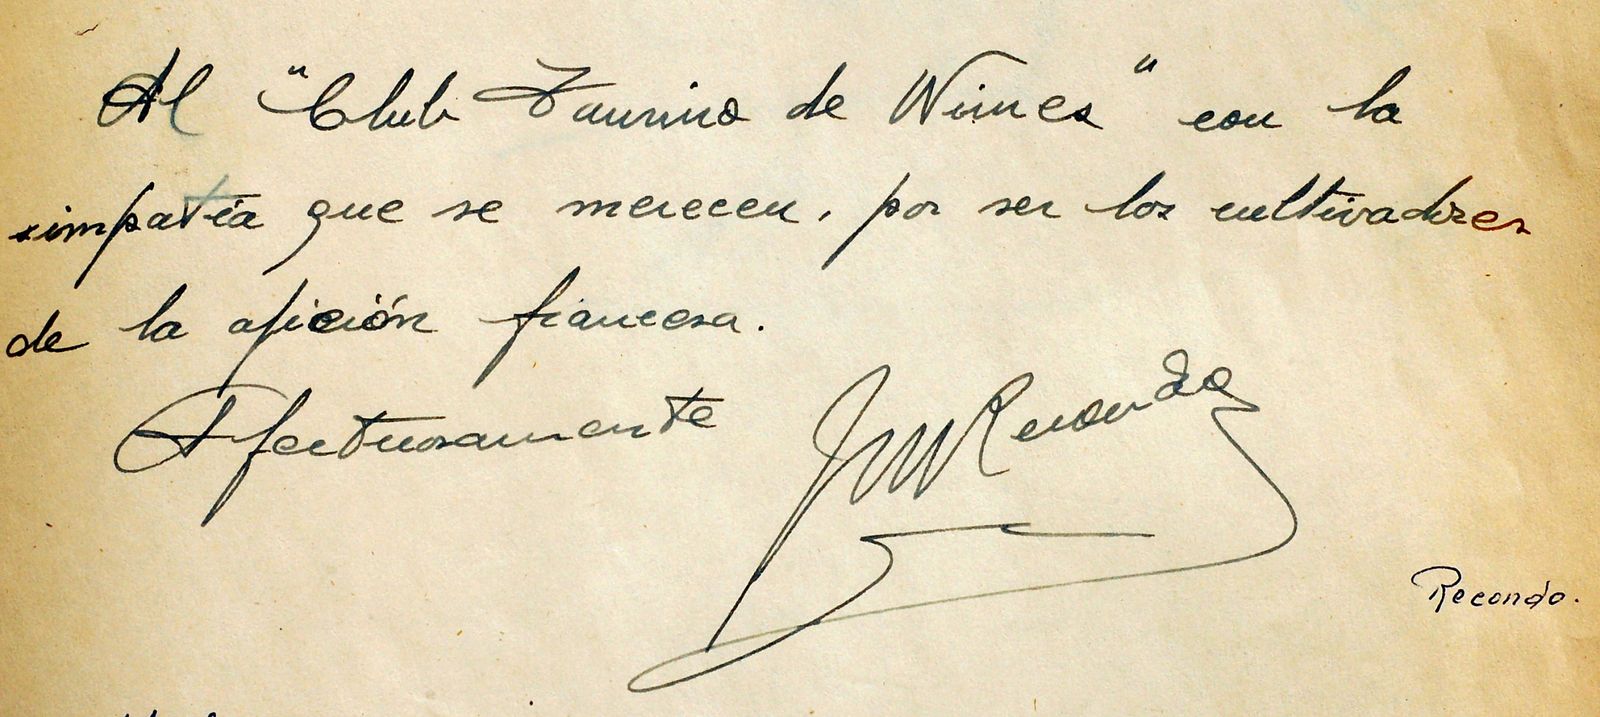 Al "Club Taurino de Nimes" con la
simpatía que se merecen, por ser los cultivadores
de la afición francesa.
Afectuosamente
Recondo
Recondo.